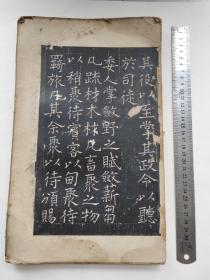 其役以至掌其政令以聽
於司徒
委人掌斂野之賦斂薪芻
凡疏材木材凡畜聚之物
以稍聚待賓客以甸聚待
羈旅凡其余聚以待頒賜